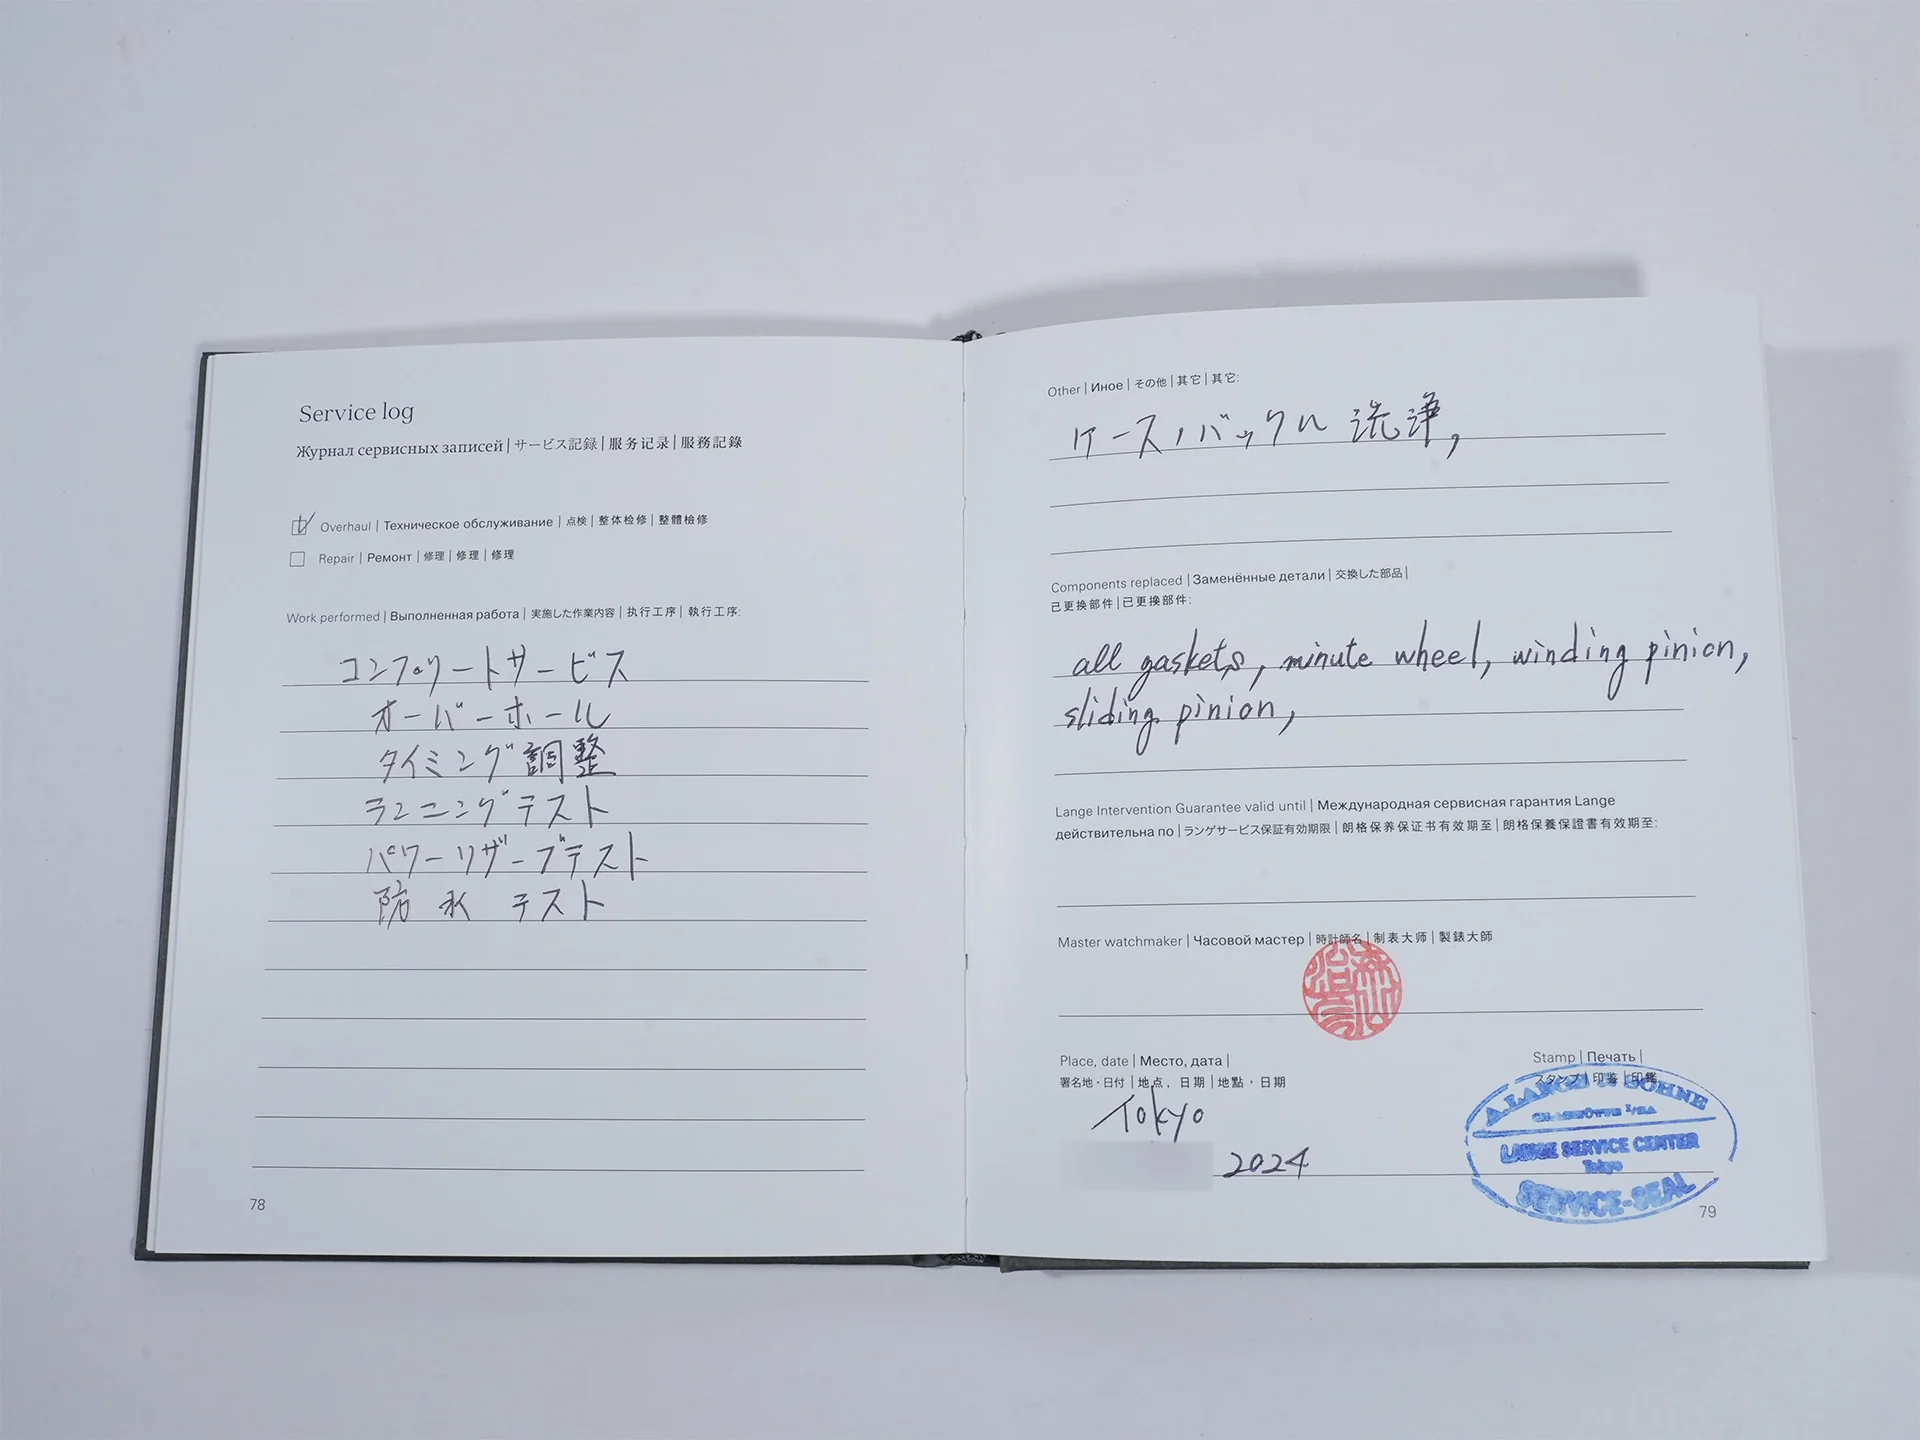 Service log
Журнал сервисных записей | サービス記録 | 服务记录 | 服務記錄
Overhaul | Техническое обслуживание | 点検 | 整体检修 | 整體檢修
Repair | Ремонт | 修理 | 修理 | 修理
Work performed | Выполненная работа | 実施した作業内容 | 执行工序 | 執行工序:
コンプリートサービス
オーバーホール
タイミング調整
ランニングテスト
パワーリザーブテスト
防水 テスト
78
Other | Иное | その他 | 其它 | 其它:
ケース,バックル洗浄,
Components replaced | Заменённые детали | 交換した部品 |
已更换部件 | 已更換部件:
all gaskets, minute wheel, winding pinion,
sliding pinion,
Lange Intervention Guarantee valid until | Международная сервисная гарантия Lange
действительна по | ランゲサービス保証有効期限 | 朗格保养保证书有效期至 | 朗格保養保證書有效期至:
Master watchmaker | Часовой мастер | 時計師名 | 制表大师 | 製錶大師
Place, date | Место, дата |
署名地・日付 | 地点, 日期 | 地點,日期
Tokyo
2024
Stamp | Печать |
スタンプ | 印鉴 | 印鑑
A. LANGE & SÖHNE
GLASHÜTTE I/SA
LANGE SERVICE CENTER
Tokyo
SERVICE-SEAL
79